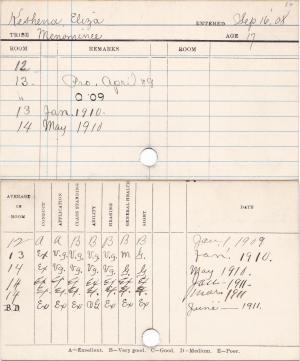 Keshena, Eliza ENTERED Sep 16, 08
TRIBE Menominee AGE 17
ROOM REMARKS ROOM
12
13 Pro. April 09
" O. 09
13 Jan. 1910.
14 May 1910
AVERAGE IN ROOM CONDUCT APPLICATION CLASS STANDING ABILITY HEARING GENERAL HEALTH SIGHT DATE
12 A A B B B B B Jan, 1, 1909
13 Ex V.g. V.g. V.g. V.g. M G. Jan. 1910.
14 Ex V.g. V.g. V.g. V.g. G. G. May 1910.
14 1911
14 Mar 1911
Ex Ex Ex VG Ex Ex Ex June - 1911.
A—Excellent. B—Very good. C—Good. D—Medium. E—Poor.